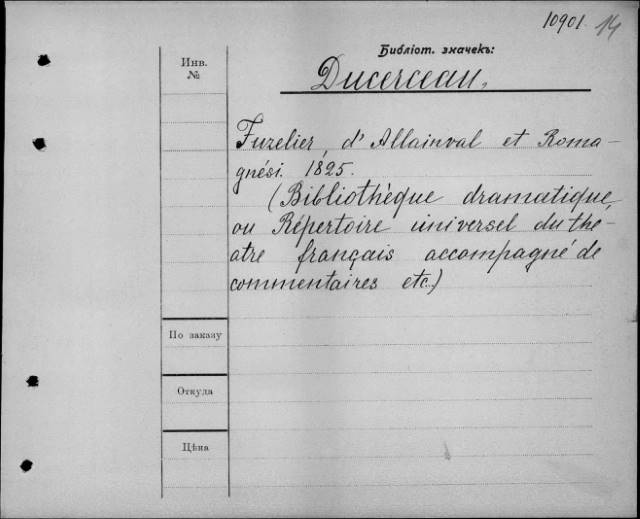 10901. 14
Библіот. значекъ:
Инв.
№
Ducerceau,
Fuzelier, d'Allainval et Roma-
gnési. 1825.
(Bibliothèque dramatique,
ou Répertoire universel du thé-
atre français accompagné de
commentaires etc.)
По заказу
Откуда
Цѣна